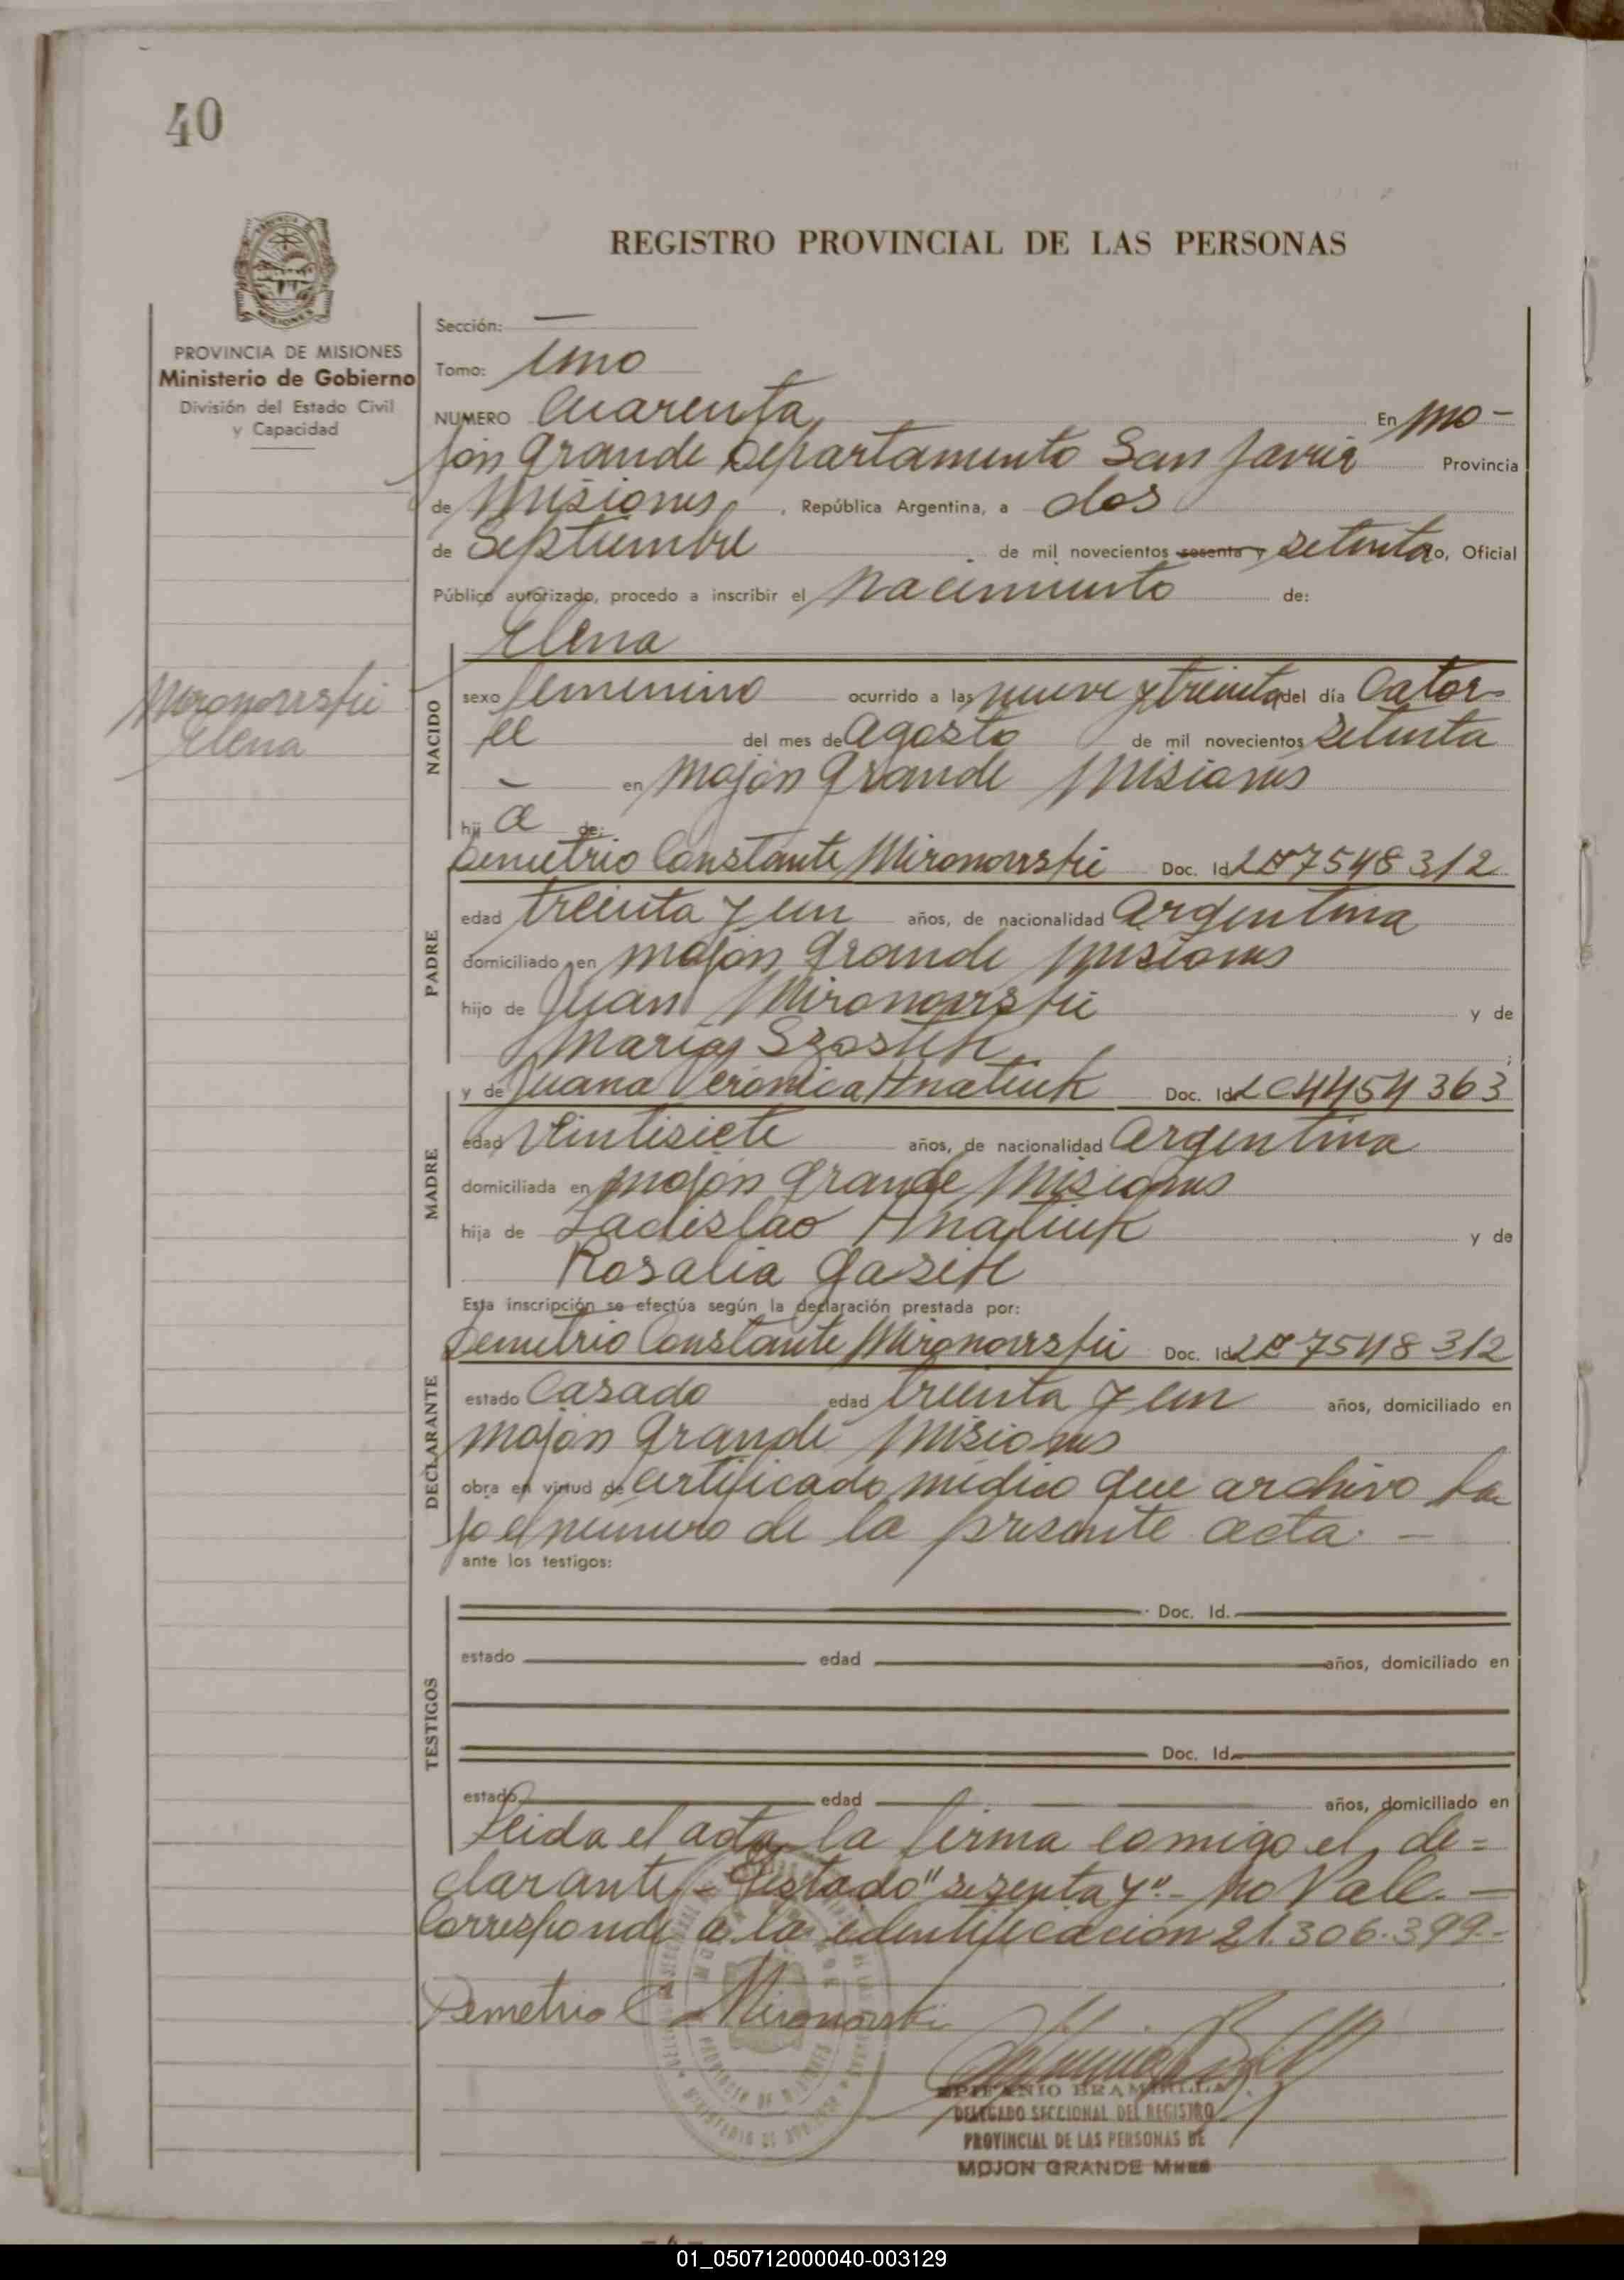 40
REGISTRO PROVINCIAL DE LAS PERSONAS
PROVINCIA DE MISIONES
Ministerio de Gobierno
División del Estado Civil
y Capacidad
Mironowski
Elena
Sección: —
Tomo: Uno
NUMERO Cuarenta En Mo-
jón Grande Departamento San Javier Provincia
de Misiones, República Argentina, a dos
de Septiembre de mil novecientos sesenta y setenta yo, Oficial
Público autorizado, procedo a inscribir el Nacimiento de:
Elena
NACIDO
sexo femenino ocurrido a las nueve y treinta del día Cator-
ce del mes de Agosto de mil novecientos setenta
— en Mojón Grande Misiones
hij a de:
Demetrio Constante Mironowski Doc. Id. LE 7548312
PADRE
edad treinta y un años, de nacionalidad Argentina
domiciliado en Mojón Grande Misiones
hijo de Juan Mironowski y de
María Szostek
y de Juana Verónica Hnatiuk Doc. Id. LC 4454363
MADRE
edad veintisiete años, de nacionalidad Argentina
domiciliada en Mojón Grande Misiones
hija de Ladislao Hnatiuk y de
Rosalia
Esta inscripción se efectúa según la declaración prestada por:
Demetrio Constante Mironowski Doc. Id. LE 7548312
DECLARANTE
estado Casado edad treinta y un años, domiciliado en
Mojón Grande Misiones
obra en virtud de certificado médico que archivo ba
jo el número de la presente acta. —
ante los testigos:
TESTIGOS
Doc. Id.
estado edad años, domiciliado en
Doc. Id.
estado edad años, domiciliado en
Leida el acta la firma comigo el de=
clarante.- Testado "sesenta y".- No Vale. —
Corresponde a la identificación 21.306.399.-
Demetrio C Mironowski
EPIFANIO BRAMBILLA
DELEGADO SECCIONAL DEL REGISTRO
PROVINCIAL DE LAS PERSONAS DE
MOJON GRANDE Mnes
PROVINCIA DE MISIONES
MINISTERIO DE GOBIERNO
01_050712000040-003129